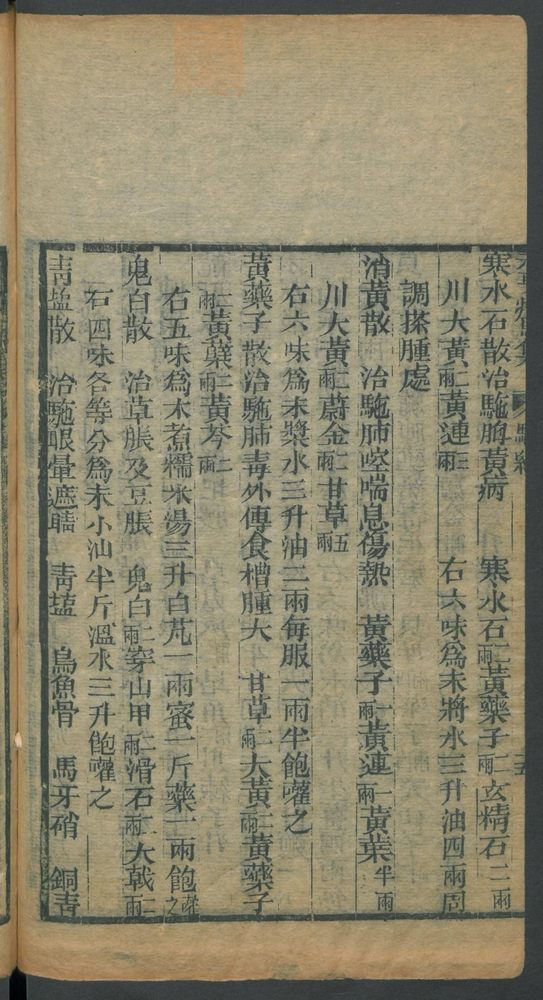 寒水石散治駞胸黃病　寒水石二兩黃藥子二兩玄精石二兩
川大黃二兩黃連二兩　右六味爲末將水三升油四兩周
調搽腫處
消黃散　治駞肺啌喘息傷熱　黃藥子一兩黃連一兩黃葉半兩
川大黃二兩蔚金二兩甘草五兩
右六味爲末漿水三升油二兩每服一兩半飽嚾之
黃藥子散治駞肺毒外傳食槽腫大　甘草二兩大黃二兩黃藥子
二兩黃葉二兩黃芩二兩
右五味爲末煮糯米湯三升白芃一兩蜜二斤藥一兩飽嚾之
鬼白散　治草脹及豆脹　鬼白二兩穿山甲二兩滑石二兩大戟二兩
右四味各等分爲末小油半斤溫水三升飽嚾之
靑盐散　治駞眼暈遮睛　靑盐　烏魚骨　馬牙硝　銅靑